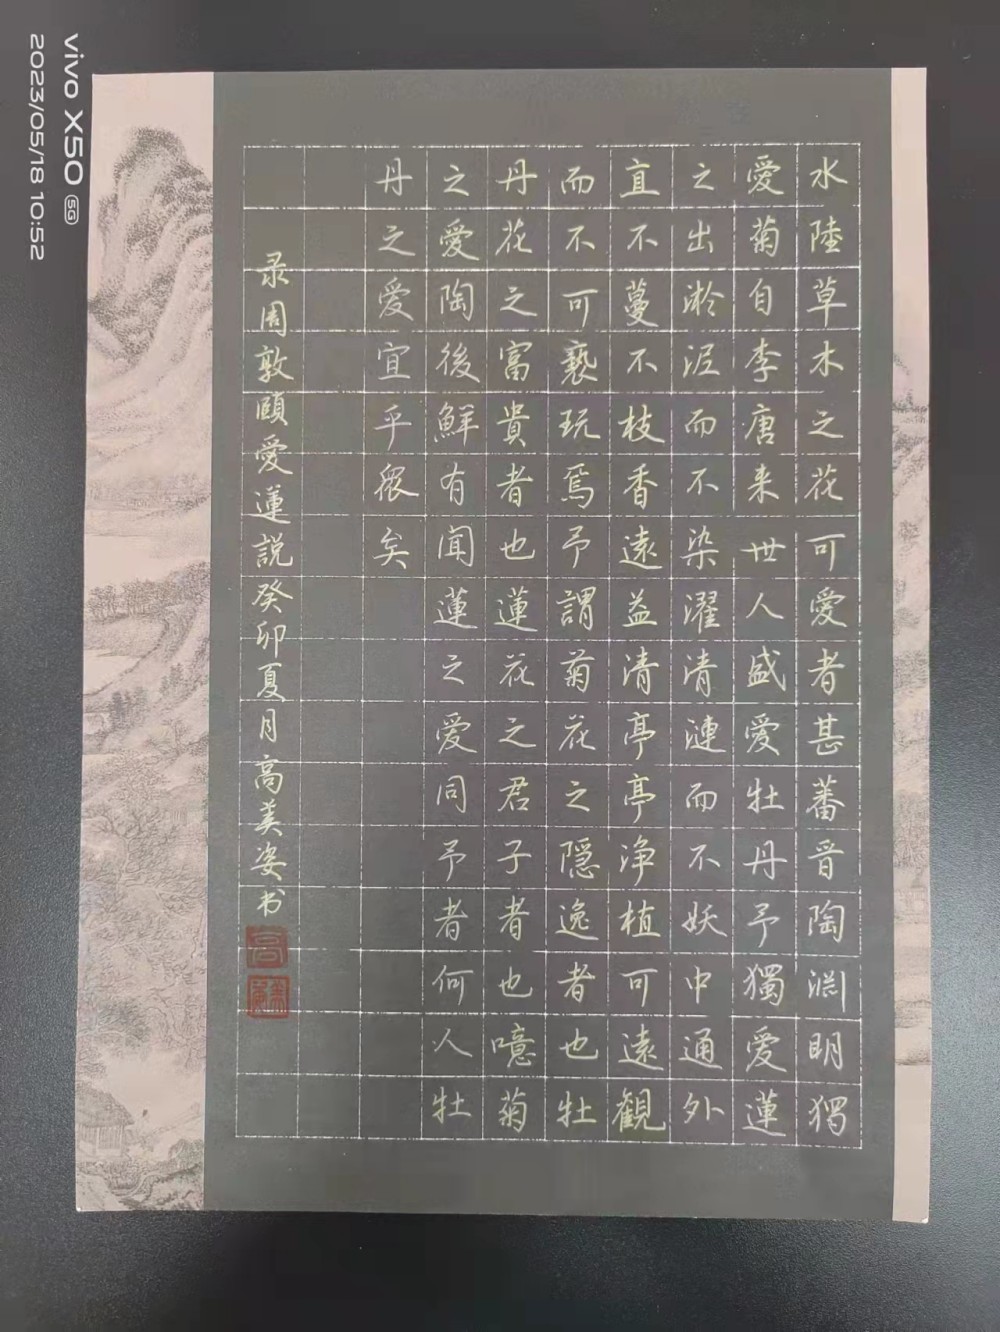 水陸草木之花可愛者甚蕃晉陶淵明獨
愛菊自李唐来世人盛愛牡丹予獨愛蓮
之出淤泥而不染濯清漣而不妖中通外
直不蔓不枝香遠益清亭亭净植可遠観
而不可褻玩焉予謂菊花之隠逸者也牡
丹花之富貴者也蓮花之君子者也噫菊
之愛陶後鮮有聞蓮之愛同予者何人牡
丹之愛宜乎眾矣
录周敦頤愛蓮説癸卯夏月高美姿书
vivo X50 5G
2023/05/18 10:52